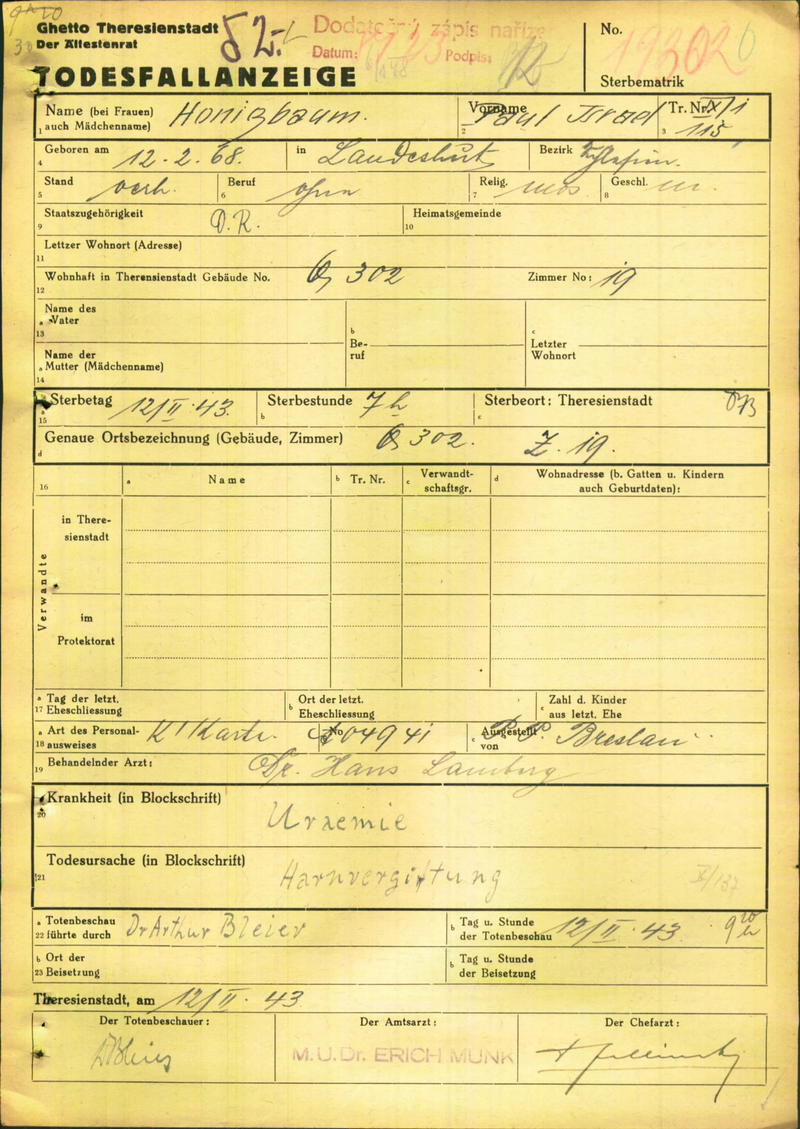 Ghetto Theresienstadt
Der Ältestenrat
52.-
Dodatečný zápis naříze
Datum: Podpis:
No. 19302
Sterbematrik
TODESFALLANZEIGE
1 Name (bei Frauen) auch Mädchenname) Honigbaum.
2 Vorname Paul Israel
3 Tr. Nr. IX/1 115
4 Geboren am 12.2.68. in Landeshut Bezirk
5 Stand verh. 6 Beruf ohne 7 Relig. mos. 8 Geschl. m.
9 Staatszugehörigkeit D.R. 10 Heimatsgemeinde
11 Lettzer Wohnort (Adresse)
12 Wohnhaft in Therensienstadt Gebäude No. Q 302 Zimmer No: 19
13 a Name des Vater b Beruf c Letzter Wohnort
14 a Name der Mutter (Mädchenname)
15 a Sterbetag 12/II.43. b Sterbestunde 7h c Sterbeort: Theresienstadt
d Genaue Ortsbezeichnung (Gebäude, Zimmer) Q 302. Z. 19.
16 a Name b Tr. Nr. c Verwandtschaftsgr. d Wohnadresse (b. Gatten u. Kindern auch Geburtdaten):
Verwandte
in Theresienstadt
im Protektorat
17 a Tag der letzt. Eheschliessung b Ort der letzt. Eheschliessung c Zahl d. Kinder aus letzt. Ehe
18 a Art des Personalausweises K'Karte b No 04941 c Ausgestellt von P.P. Breslau
19 Behandelnder Arzt: Dr. Hans Lamberg
20 Krankheit (in Blockschrift) Uraemie
21 Todesursache (in Blockschrift) Harnvergiftung
22 a Totenbeschau führte durch Dr Arthur Bleier b Tag u. Stunde der Totenbeschau 12/II.43. 9 20 h
23 b Ort der Beisetzung b Tag u. Stunde der Beisetzung
Theresienstadt, am 12/II.43.
Der Totenbeschauer: Der Amtsarzt: Der Chefarzt:
M.U.Dr. ERICH MUNK